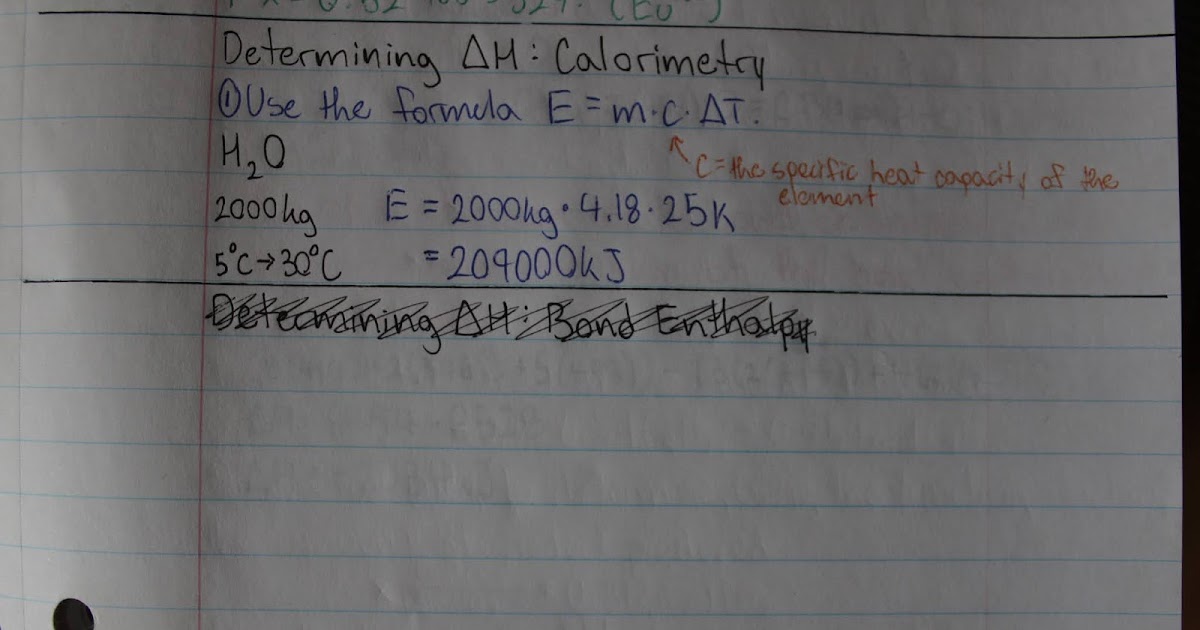 Determining ΔH: Calorimetry
①Use the formula E = m·c·ΔT.
H₂O
c=the specific heat capacity of the
element
2000kg E = 2000kg·4.18·25K
5°C→30°C = 209000kJ
Determining ΔH: Bond Enthalpy